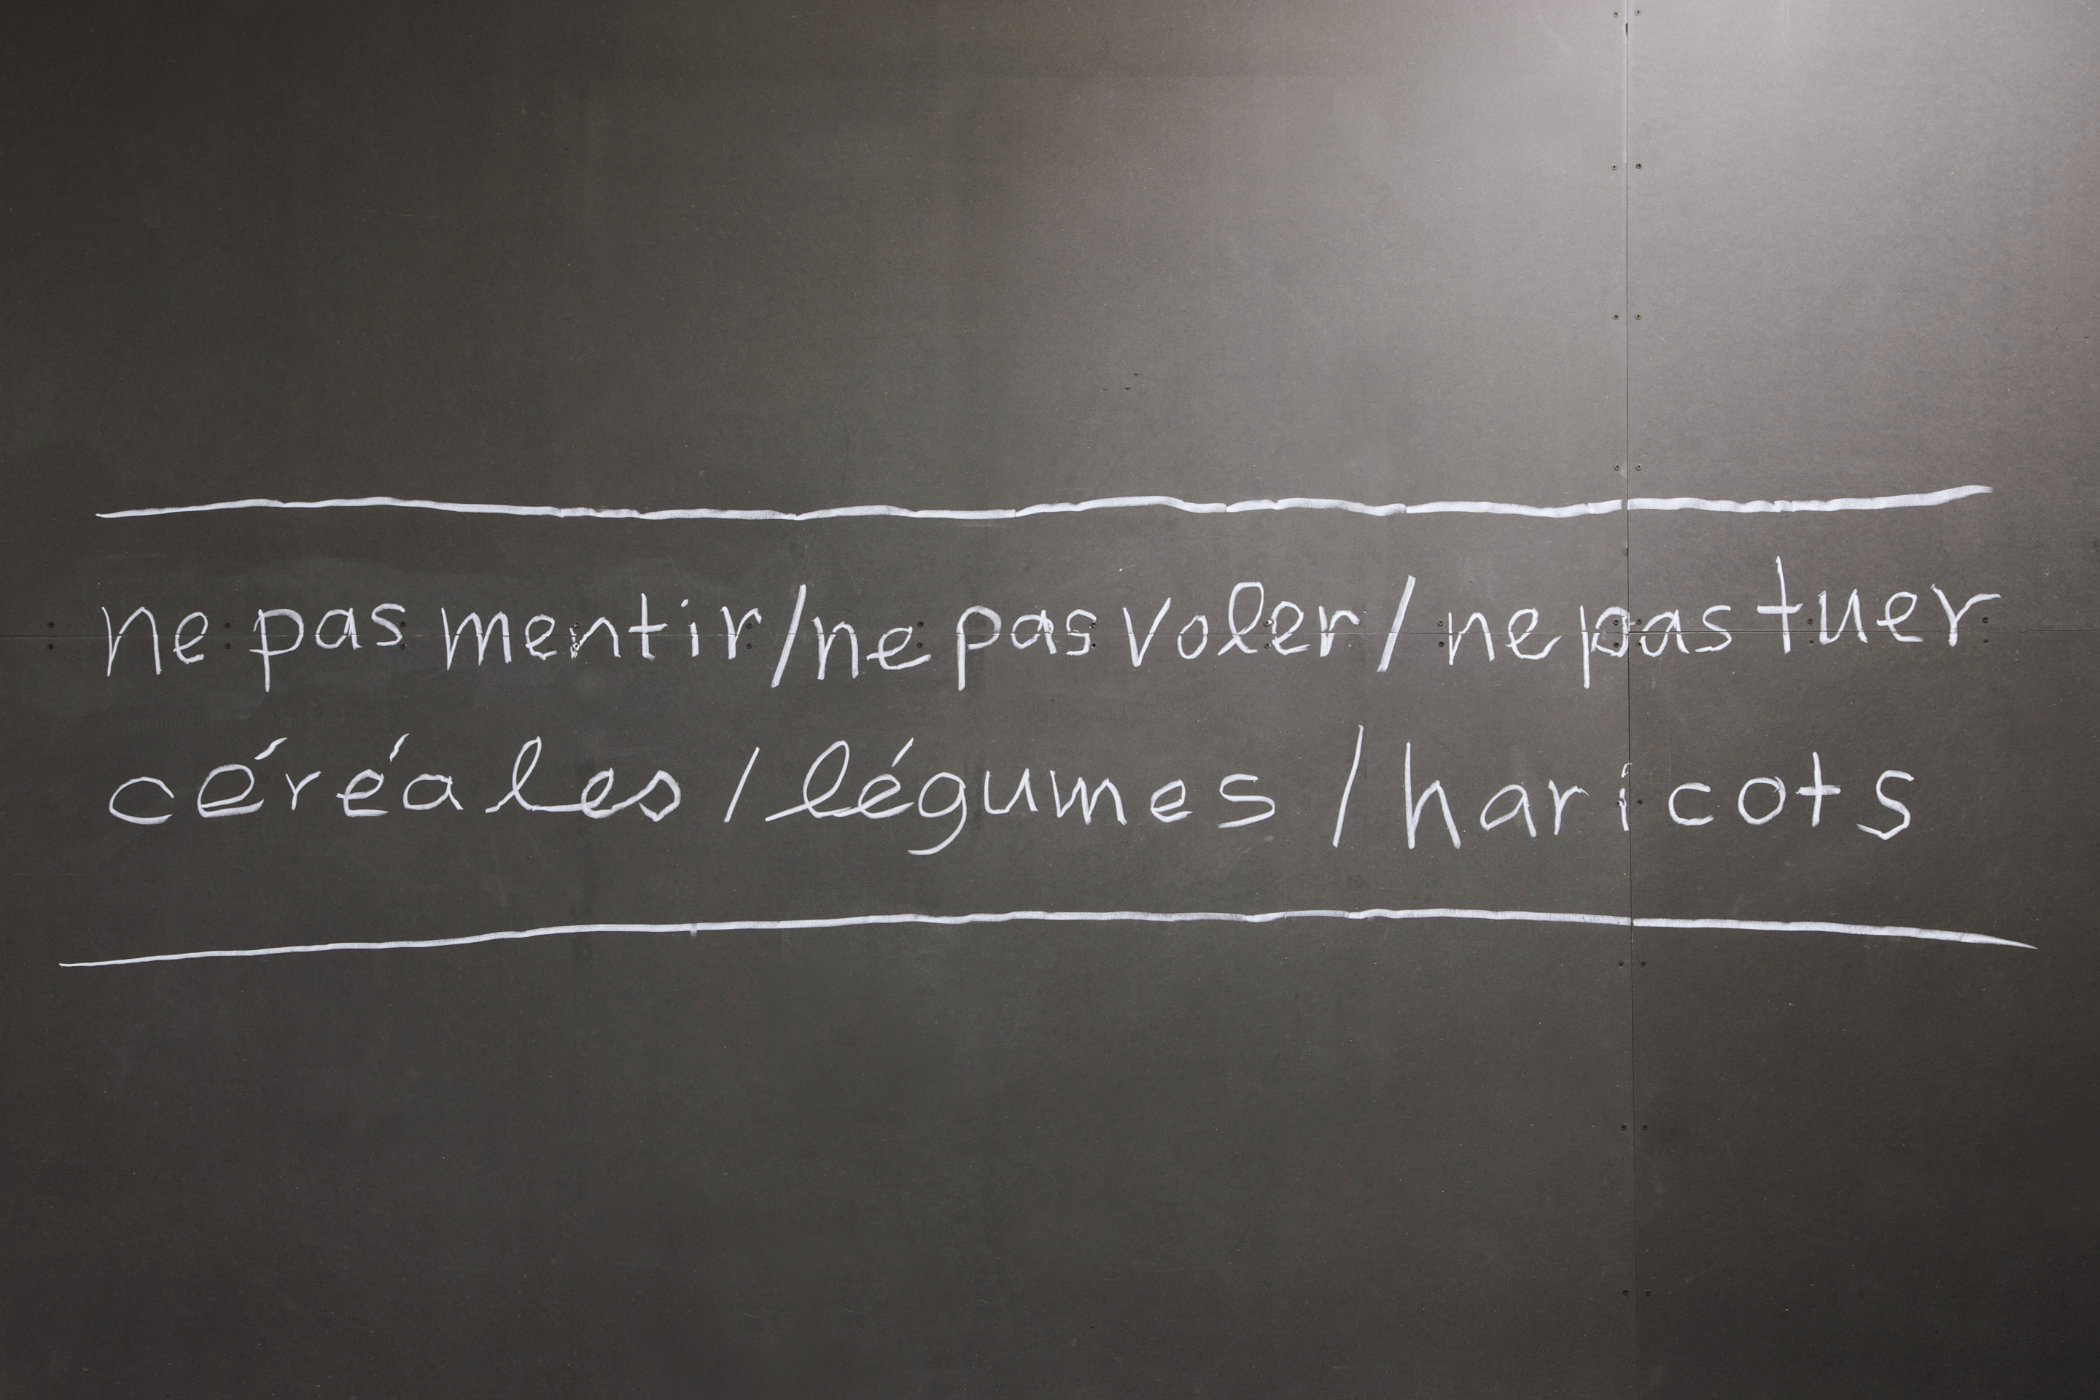 ne pas mentir/ne pas voler/ne pas tuer
céréales/légumes/haricots